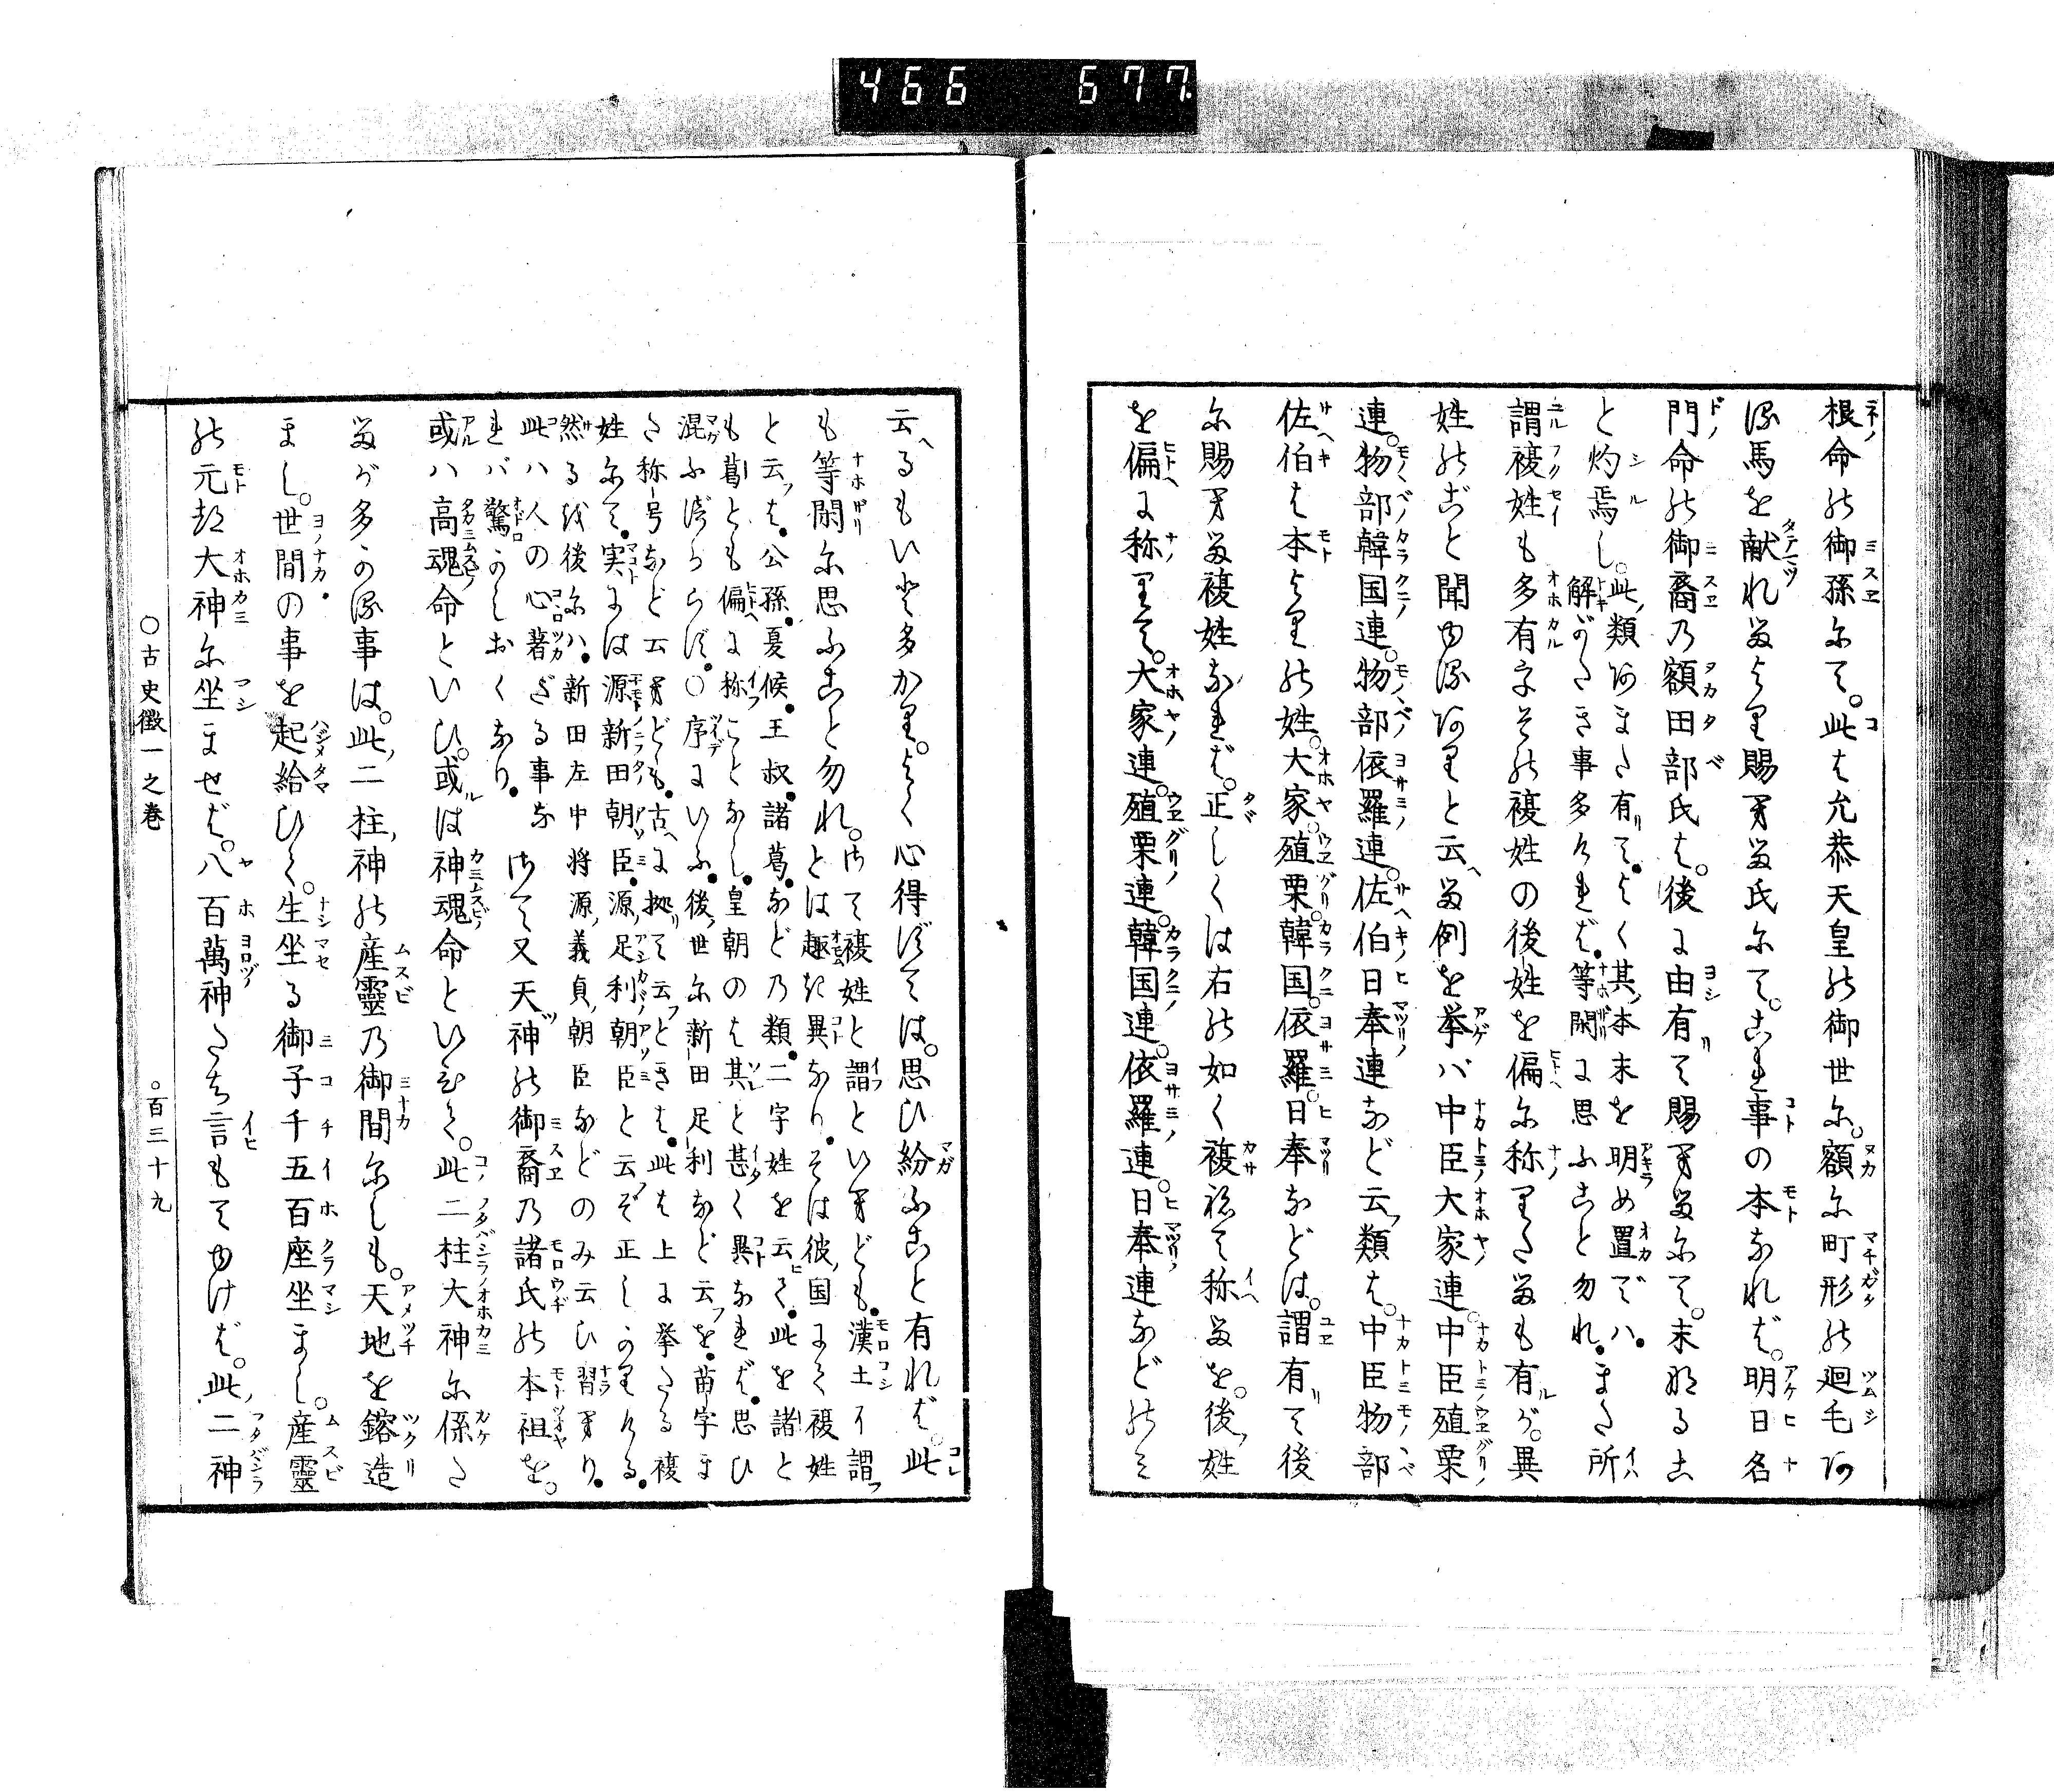 466 677
根命の御孫にて。此は允恭天皇の御世に。額に町形の廻毛ある
る馬を献れるより賜へる氏にて。これ事の本なれば。明日名
門命の御裔の額田部氏は。後に由有て賜へるにて。末なるこ
と灼焉し。此類あまた有て。よく其本末を明め置でハ。
解がたき事多ければ。等閑に思ふこと勿れ。また所
謂複姓も多有々その複姓の後姓を偏に称りたるも有が。異
姓のごと聞ゆるありと云る例を挙バ中臣大家連。中臣殖栗
連。物部韓国連。物部依羅連。佐伯日奉連など云類は。中臣物部
佐伯は本よりの姓。大家。殖栗。韓国。依羅。日奉などは。謂有て後
に賜へる複姓なれば。正しくは右の如く複ねて称へるを。後姓
を偏に称りて。大家連。殖栗連。韓国連。依羅連。日奉連などのミ
云るもいと多かり。よく心得ずては。思ひ紛ふこと有れば。此
も等閑に思ふこと勿れ。さて複姓と謂といへども。漢土イ謂
とは趣き異なり。そは彼国にて複姓
と云は。公孫。夏候。王叔。諸葛。などの類。二字姓を云ひて。此を諸と
も葛とも偏に称ことなし。皇朝のは其と甚く異なれば。思ひ
混ふべからず。○序にいふ。後世に新田足利など云を。苗字ま
た称号など云へども。古に拠て云ときは。此は上に挙たる複
姓にて。実には源新田朝臣。源足利朝臣と云ぞ正しかりける。
然るを後にハ。新田左中将源義貞朝臣などのみ云ひ習へり。
此ハ人の心著ざる事な
れバ驚かしおくなり。さて又天神の御裔の諸氏の本祖を。
或ハ高魂命といひ。或は神魂命といひて。此二柱大神に係た
るが多かる事は。此二柱神の産霊の御間にしも。天地を鎔造
まし。世間の事を起給ひて。生坐る御子千五百座坐まし。産霊
の元都大神に坐ませば。八百萬神たち言もてゆけば。此二神
○古史徴一之巻
○百三十九